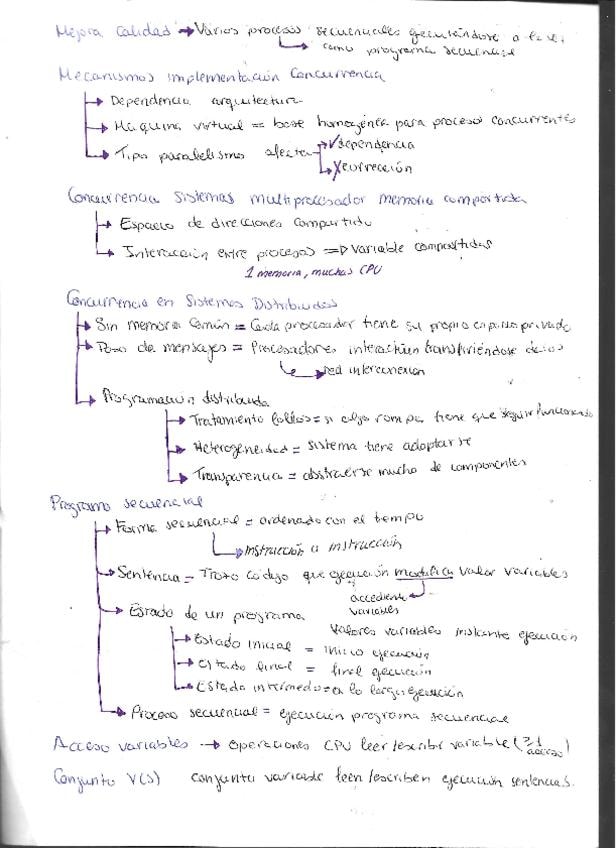 Mejora Calidad → Varios procesos secuenciales ejecutándose a la vez
como programa secuencial
Mecanismos implementación Concurrencia
Dependencia arquitectura
Maquina virtual = base homogénea para procesos concurrentes
Tipo paralelismo afecta ✓ dependencia
X corrección
Concurrencia Sistemas multiprocesador memoria compartida
Espacio de direcciones compartido
Interacción entre procesos ⇒ variable compartidas
1 memoria, muchas CPU
Concurrencia en Sistemas Distribuidos
Sin memoria Común = Cada procesador tiene su propio espacio privado
Paso de mensajes = Procesadores interactúan transfiriéndose datos
red interconexion
Programacion distribuida
Tratamiento fallos = si algo rompe, tiene que seguir funcionando
Heterogeneidad = sistema tiene adaptarse
Transparencia = abstraerse mucho de componentes
Programa secuencial
Forma secuencial = ordenado con el tiempo
instrucción a instrucción
Sentencia = Trozo código que ejecución modifica valor variables
accediente
variables
Estado de un programa
Valores variables instante ejecución
Estado inicial = inicio ejecución
Estado final = final ejecución
Estado intermedo = a lo largo ejecución
Proceso secuencial = ejecución programa secuencial
Acceso variables → operaciones CPU leer/escribir variable (≥1 acceso)
Conjunto V(S) conjunto variable leen/escriben ejecución sentencia S.